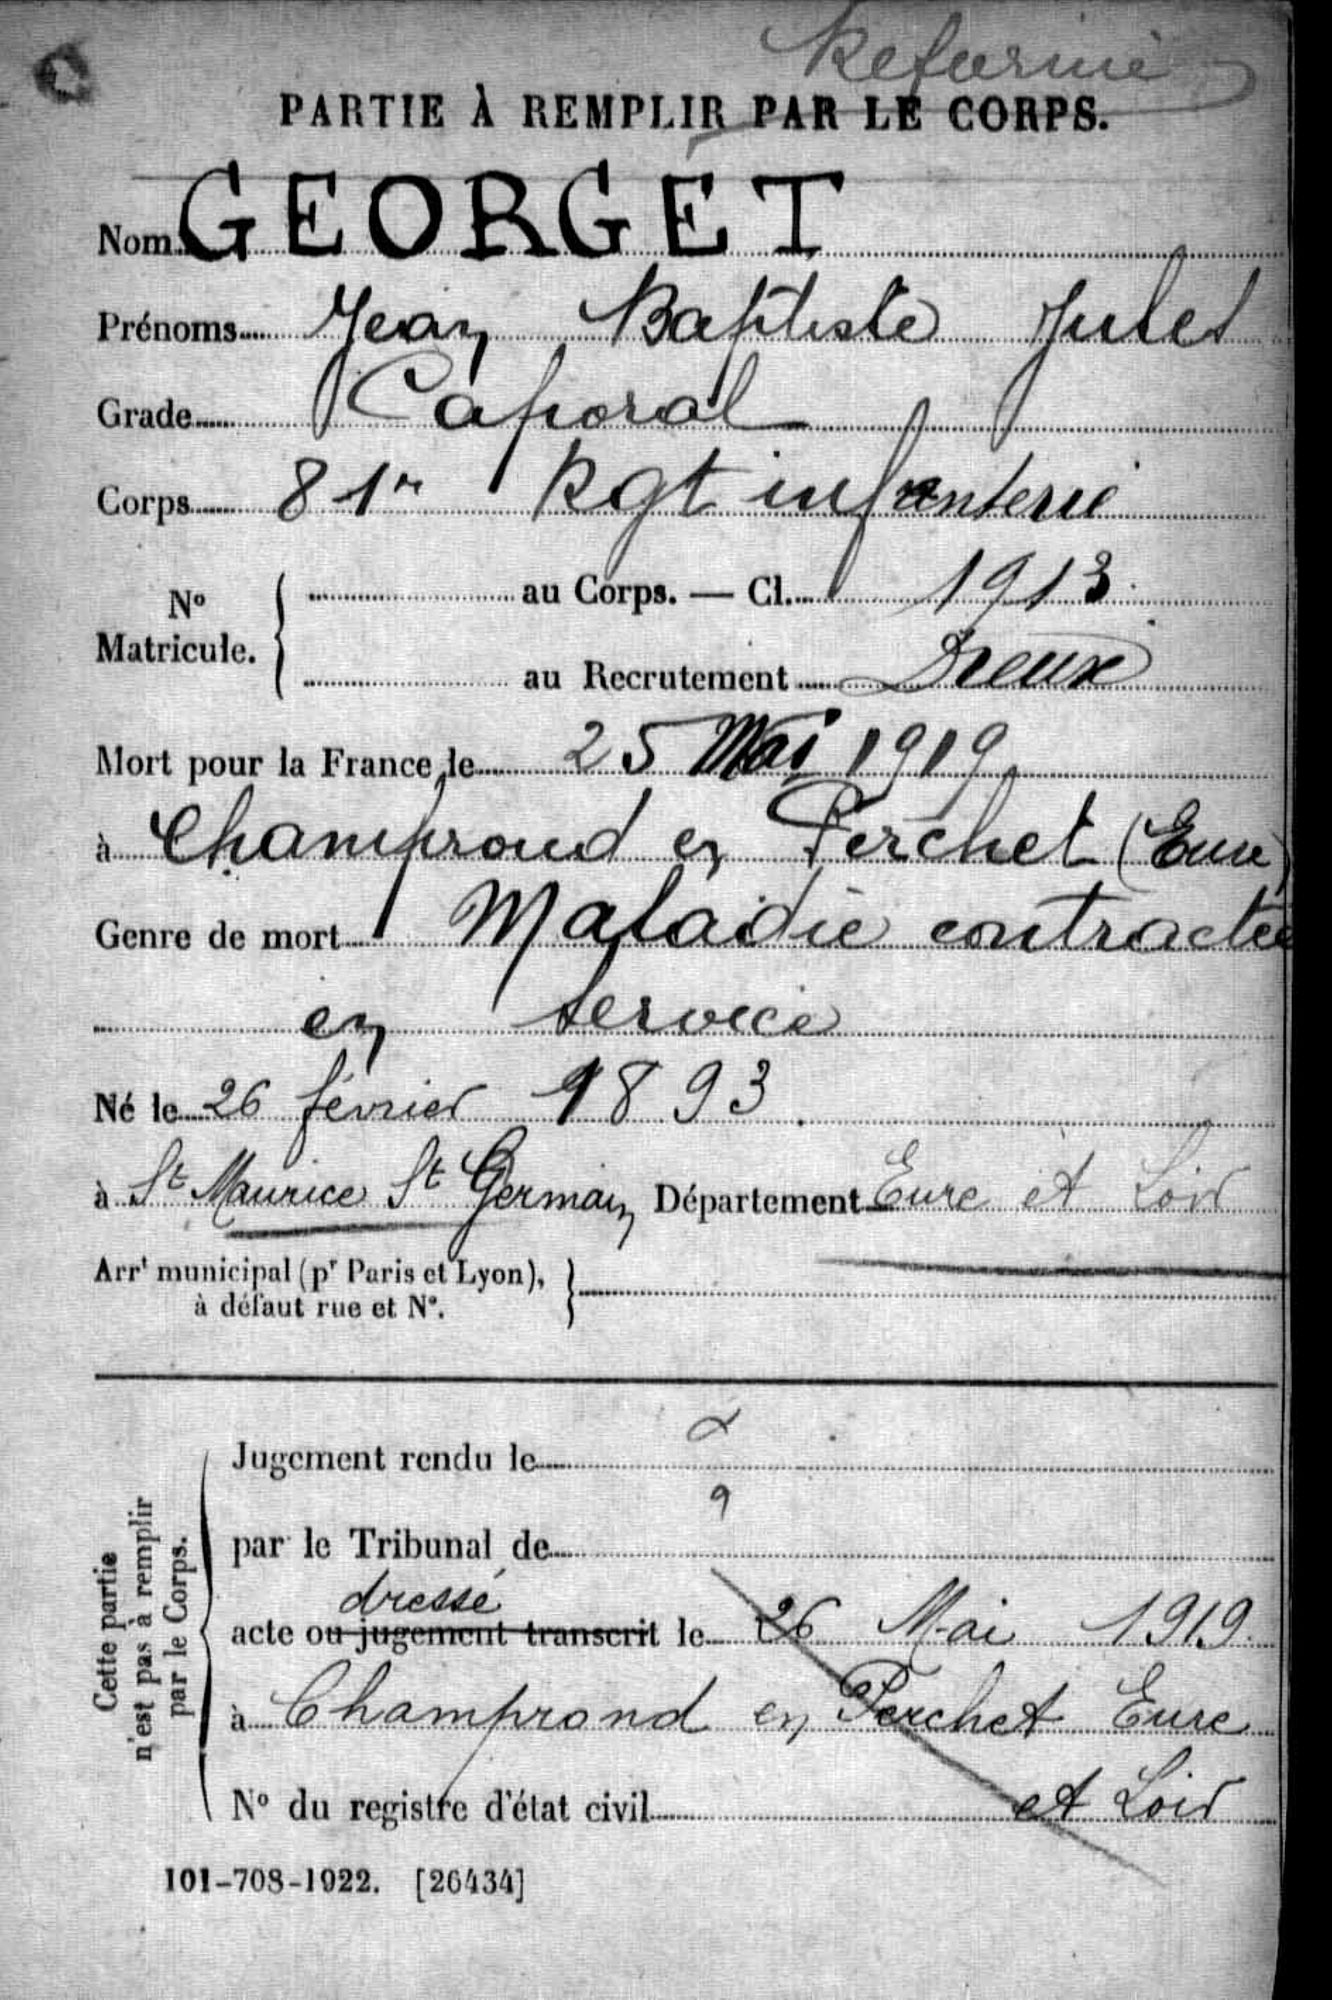 Réformé
PARTIE À REMPLIR PAR LE CORPS.
Nom GEORGET
Prénoms Jean Baptiste Jules
Grade Caporal
Corps 81e Rgt infanterie
N° Matricule. { au Corps. — Cl. 1913
au Recrutement Dreux
Mort pour la France le 25 Mai 1919
à Champrond en Perchet (Eure)
Genre de mort Maladie contractée
en service
Né le 26 février 1893
à St Maurice St Germain Département Eure et Loir
Arrt municipal (pr Paris et Lyon),
à défaut rue et N°.
Cette partie
n'est pas à remplir
par le Corps.
Jugement rendu le
par le Tribunal de
dressé
acte ou jugement transcrit le 26 Mai 1919
à Champrond en Perchet Eure
N° du registre d'état civil et Loir
101-708-1922. [26434]